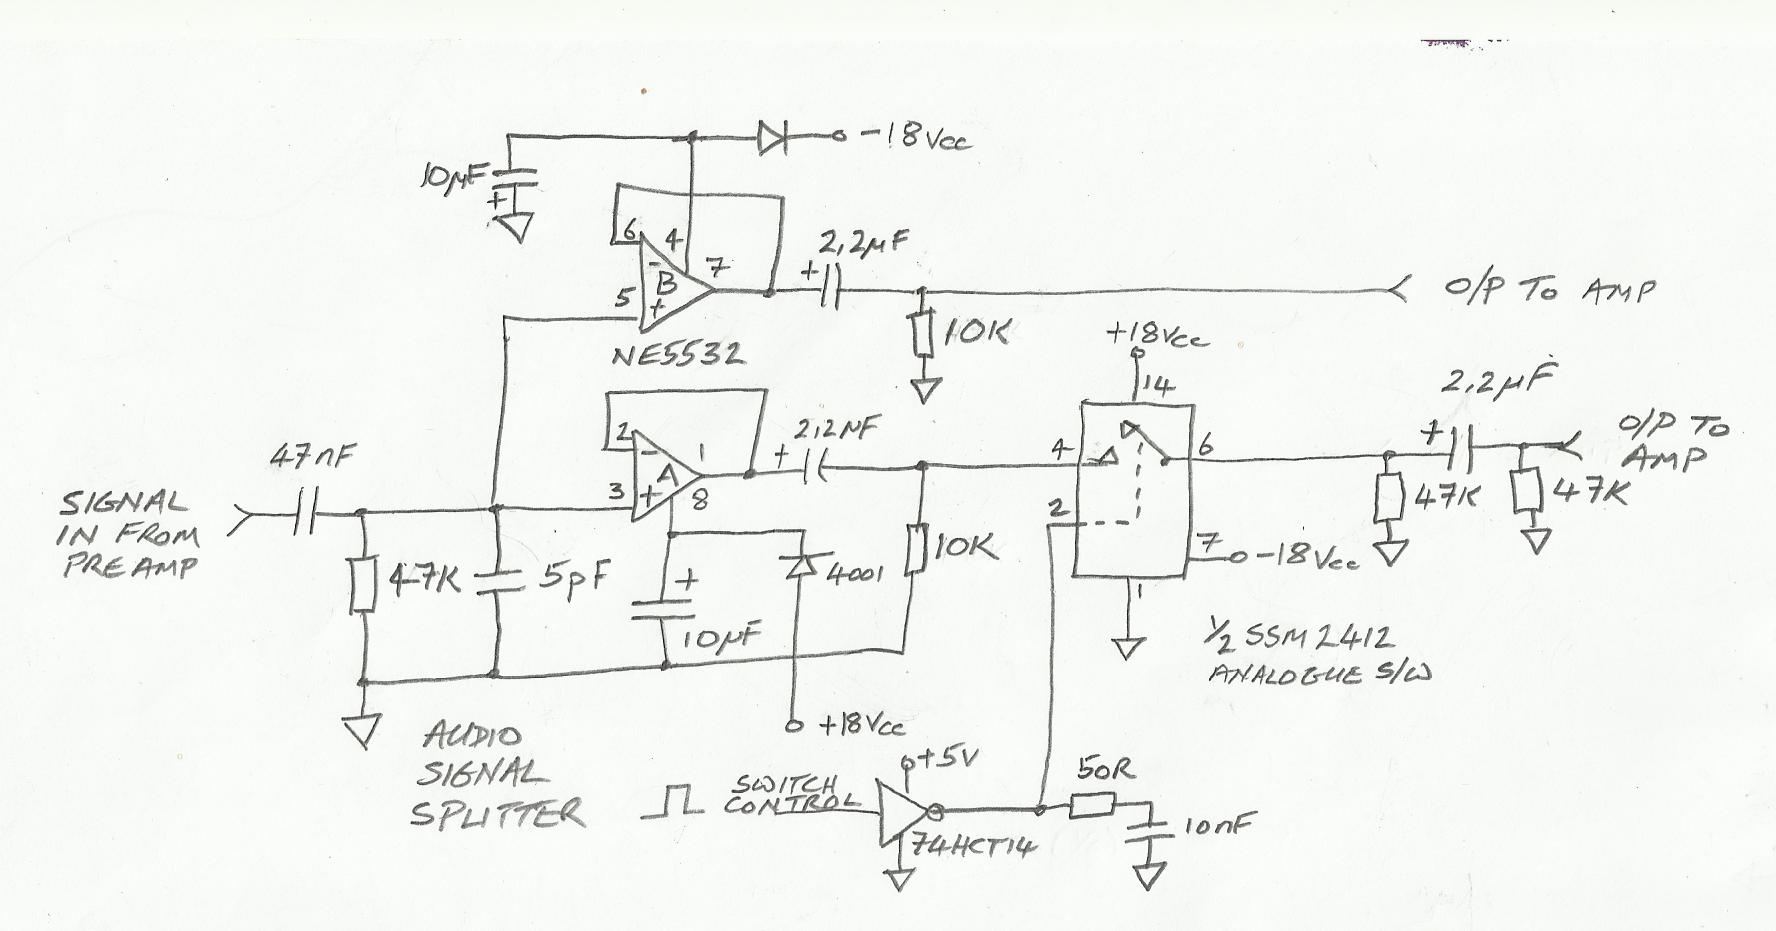 -18Vcc
10µF
+
6
4
-
B
7
2.2µF
+
5
+
NE5532
10K
O/P TO AMP
+18Vcc
14
2
-
A
1
3
+
8
2.2µF
+
4
6
2
7
-18Vcc
1
2.2µF
+
O/P TO
AMP
47K
47K
47nF
SIGNAL
IN FROM
PREAMP
47K
5pF
+
10µF
4001
10K
½ SSM2412
ANALOGUE S/W
+18Vcc
AUDIO
SIGNAL
SPLITTER
SWITCH
CONTROL
+5V
74HCT14
50R
10nF